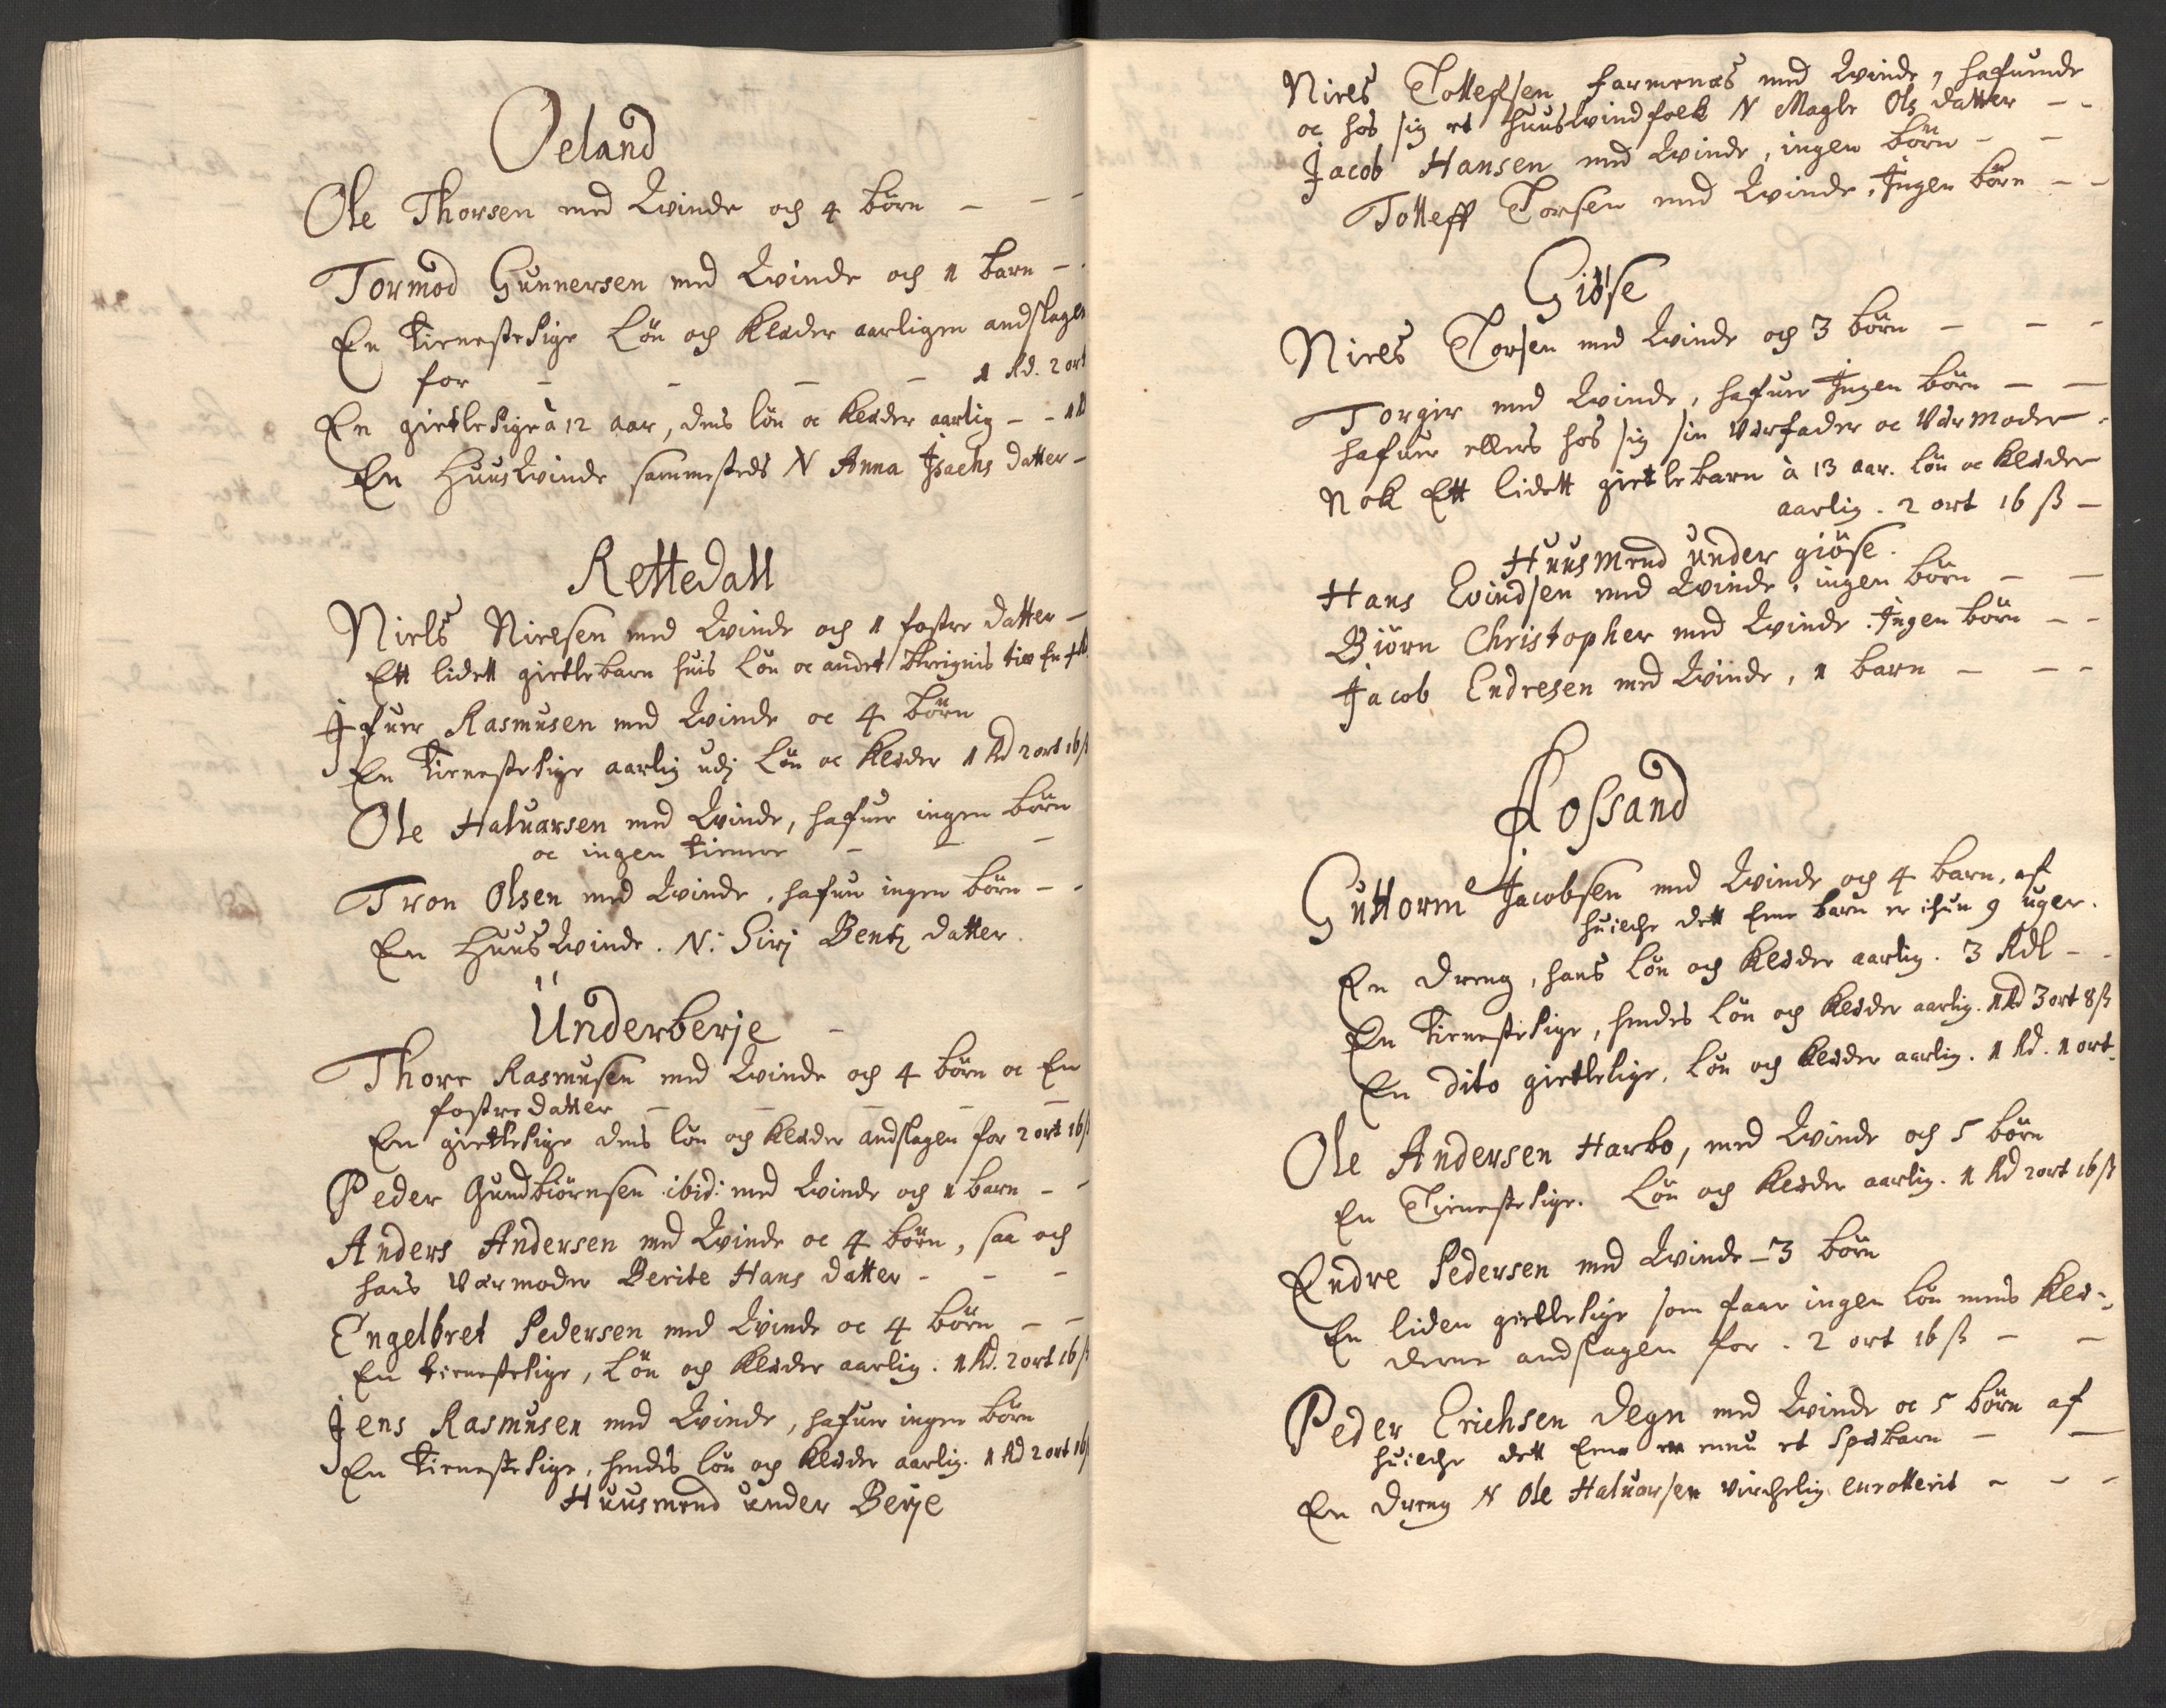 Oeland
Ole Thorsen med Qvinde och 4 börn - - -
Tormod Gunnersen med Qvinde och 1 barn - -
En tienestePige Lön och Klæder aarligen andslagen
for - - - - 1 Rd. 2 ort
En gietlePige à 12 aar, dens lön oc Klæder aarlig - - 1 R
En HuusQvinde sammesteds N Anna Isachs datter -
Rettedall
Niels Nielsen med Qvinde och 1 fostre datter -
Ett lidett gietlebarn huis Lön oc andet
Ifuer Rasmusen med Qvinde oc 4 börn
En tienestePige aarlig udj Lön oc Klæder 1 Rd 2 ort 16 ß
Ole Haluarsen med Qvinde, hafuer ingen börn
oc ingen tienere - - -
Tron Olsen med Qvinde, hafuer ingen börn - -
En HuusQvinde. N: Sirj Bentz datter.
Ünderberje -
Thore Rasmusen med Qvinde och 4 börn oc En
fostredatter - - - - -
En gietlePige dens lön och Klæder andslagen for 2 ort 16 ß
Peder Gundbiörnsen ibid: med Qvinde och 1 barn - -
Anders Andersen med Qvinde oc 4 börn, saa och
hans Værmoder Berite Hans datter - - -
Engelbret Pedersen med Qvinde oc 4 börn - -
En tienestePige, Lön och Klæder aarlig. 1 Rd. 2 ort 16 ß
Jens Rasmusen med Qvinde, hafuer ingen börn
En tienestePige, hendes lön och Klæder aarlig. 1 Rd 2 ort 16 ß
Huusmend under Berje
Niels Tollefsen farmenæs med Qvinde, hafuende
oc hos sig et huusQvindfolck N Magle Ols datter - -
Jacob Hansen med Qvinde, ingen börn - -
Tolleff Torsen med Qvinde, Ingen börn - -
Giöse
Niels Torsen med Qvinde och 3 börn - - -
Torgier med Qvinde, hafuer Ingen börn - -
hafuer ellers hos sig sin Værfader oc Værmoder -
Nok Ett lidett gietlebarn à 13 aar. Lön oc Klæder
aarlig. 2 ort 16 ß -
Huusmend under giöse.
Hans Evindsen med Qvinde, ingen börn - -
Biörn Christopher med Qvinde. Ingen börn - -
Jacob Endresen med Qvinde, 1 barn - - -
Fossand
Guttorm Jacobsen med Qvinde och 4 barn, af
huilche dett Ene barn er ichun 9 uger.
En dreng, hans Lön och Klæder aarlig. 3 Rdl - -
En tienestePige, hendes Lön och Klæder aarlig. 1 Rd 3 ort 8 ß
En dito gietlePige. Lön och Klæder aarlig. 1 Rd. 1 ort.
Ole Andersen Harbo, med Qvinde och 5 börn
En TienestePige. Lön och Klæder aarlig. 1 Rd 2 ort 16 ß
Endre Pedersen med Qvinde - 3 börn
En liden gietlePige som faar ingen lön mens Klæ-
derne andslagen for. 2 ort 16 ß - -
Peder Erichsen Degn med Qvinde oc 5 börn af
huilche dett Ene er enu et Spæbarn - -
En dreng N Ole Haluorsen virchelig enrollerit - - -